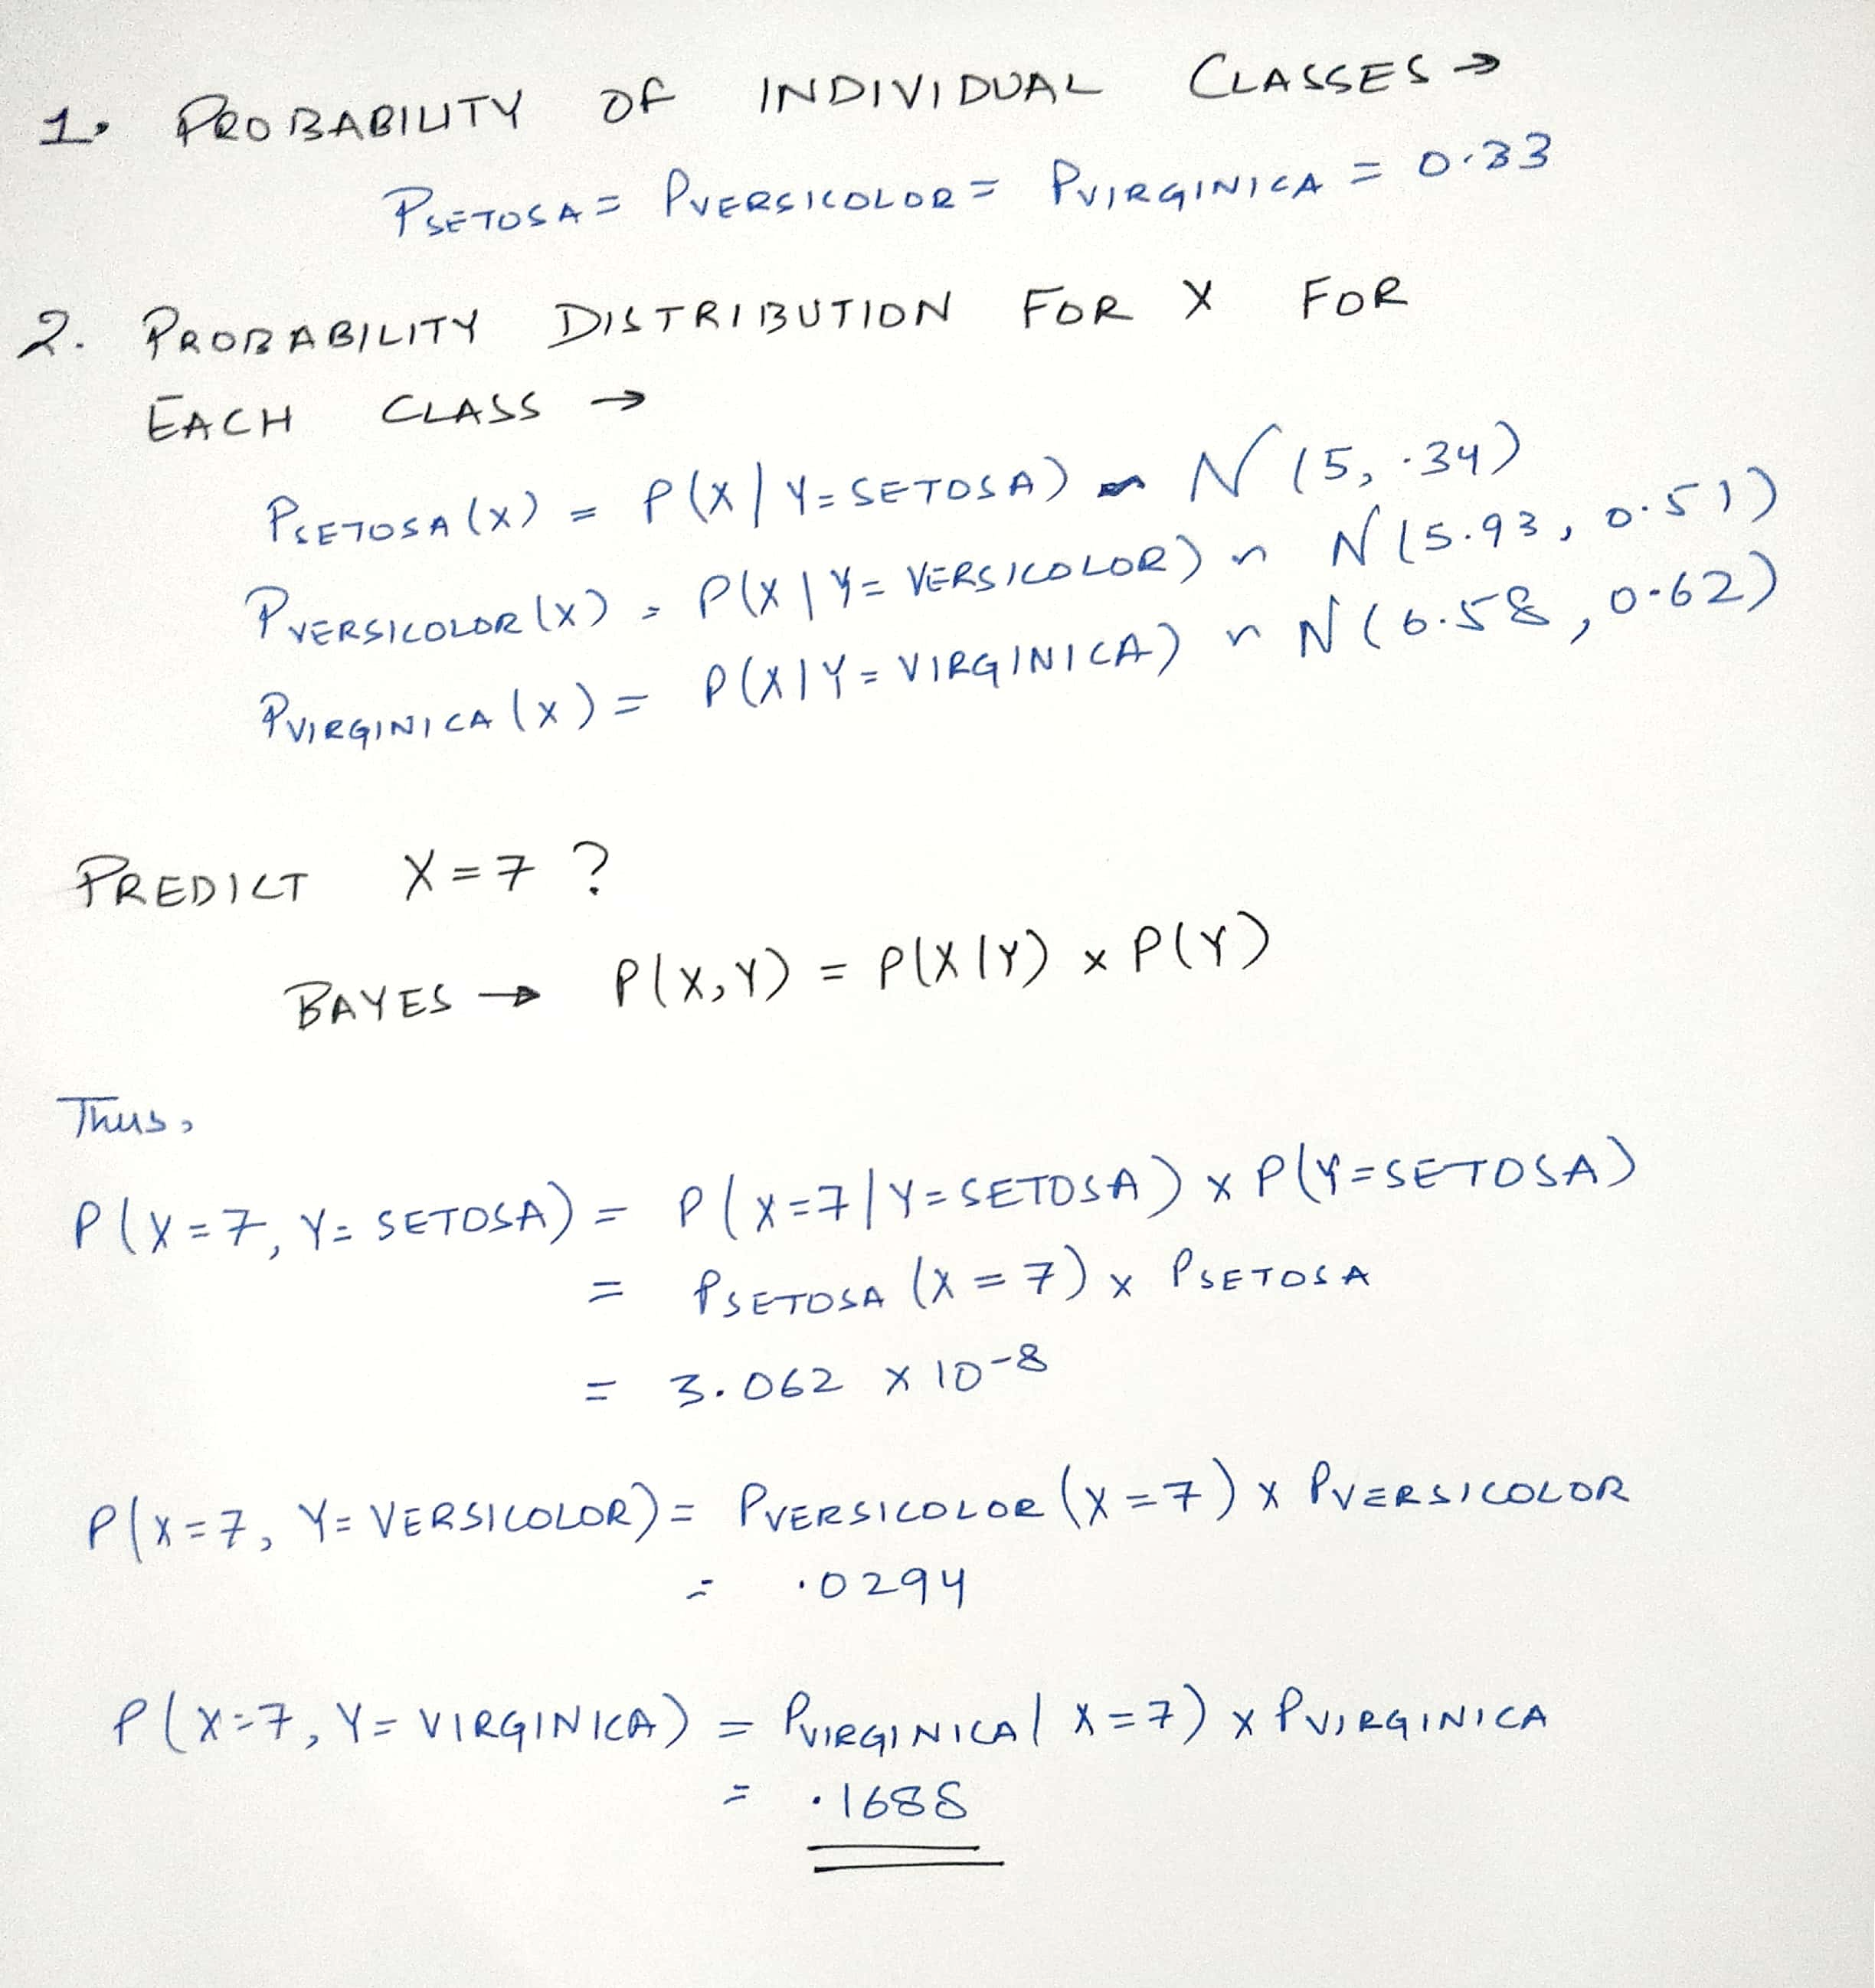 1. PROBABILITY OF INDIVIDUAL CLASSES →
PSETOSA = PVERSICOLOR = PVIRGINICA = 0.33
2. PROBABILITY DISTRIBUTION FOR X FOR
EACH CLASS →
PSETOSA (X) = P(X | Y = SETOSA) ~ N (5, .34)
PVERSICOLOR (X) = P(X | Y = VERSICOLOR) ~ N (5.93, 0.51)
PVIRGINICA (X) = P(X | Y = VIRGINICA) ~ N (6.58, 0.62)
PREDICT X = 7 ?
BAYES → P(X, Y) = P(X | Y) × P(Y)
Thus,
P(X = 7, Y = SETOSA) = P(X = 7 | Y = SETOSA) × P(Y = SETOSA)
= PSETOSA (X = 7) × PSETOSA
= 3.062 × 10-8
P(X = 7, Y = VERSICOLOR) = PVERSICOLOR (X = 7) × PVERSICOLOR
= .0294
P(X = 7, Y = VIRGINICA) = PVIRGINICA( X = 7) × PVIRGINICA
= .1688